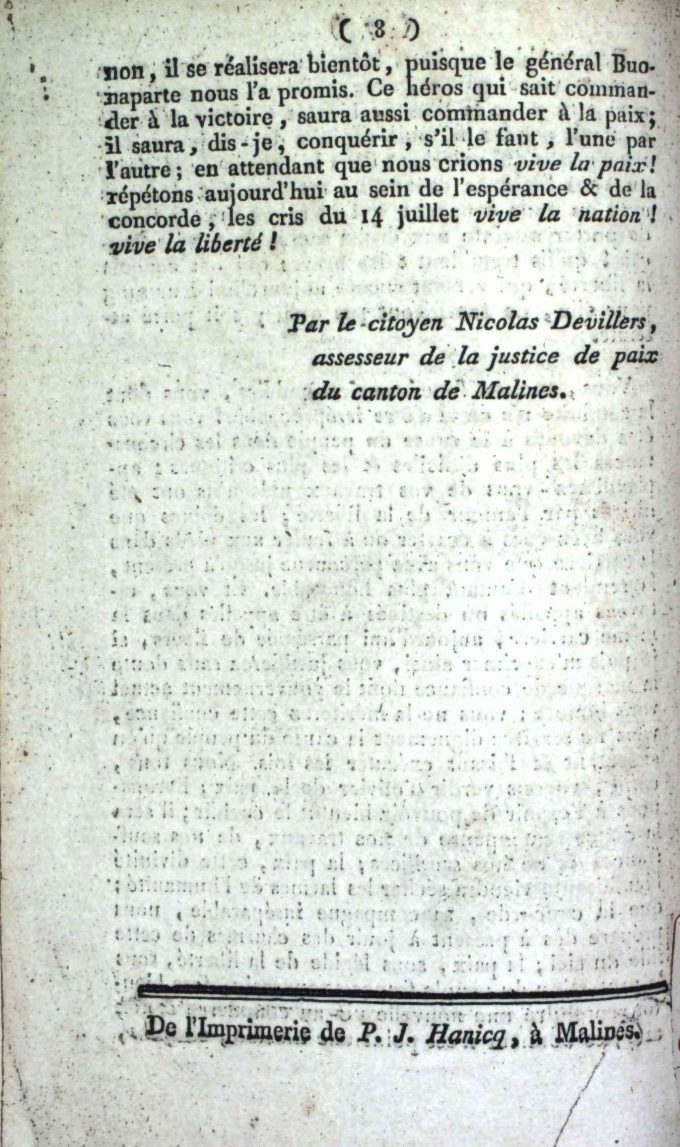 ( 8 )
non, il se réalisera bientôt, puisque le général Buo-
naparte nous l'a promis. Ce héros qui sait comman-
der à la victoire, saura aussi commander à la paix;
il saura, dis-je, conquérir, s'il le faut, l'une par
l'autre; en attendant que nous crions vive la paix!
répétons aujourd'hui au sein de l'espérance & de la
concorde, les cris du 14 juillet vive la nation!
vive la liberté!
Par le citoyen Nicolas Devillers,
assesseur de la justice de paix
du canton de Malines.
De l'Imprimerie de P. J. Hanicq, à Malines.